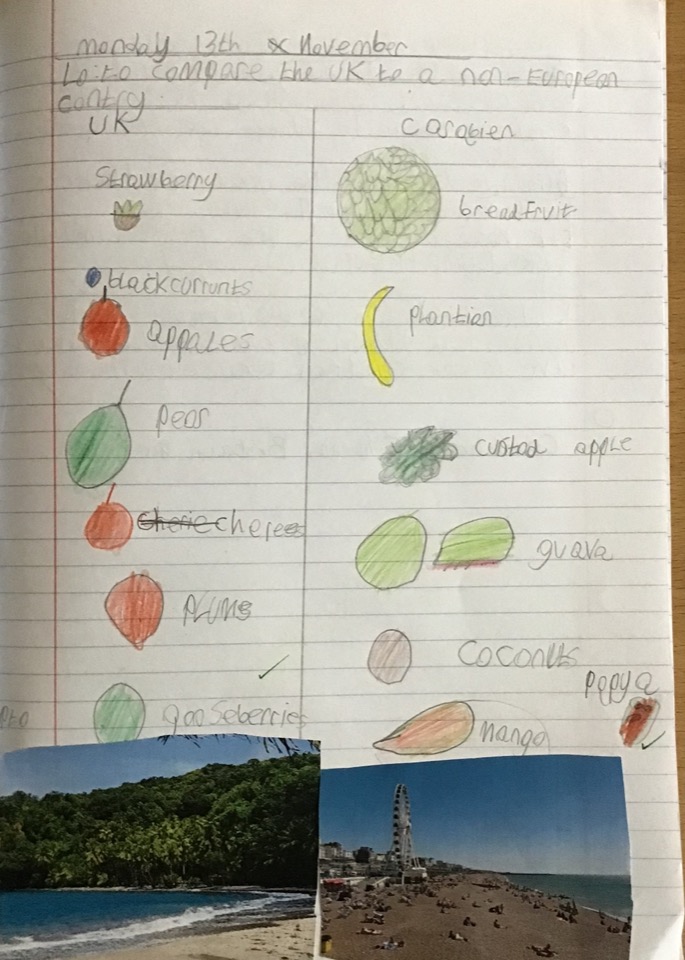 monday 13th November
Lo:to compare the UK to a non-European
contry.
UK
Carabien
Strawberry
breadfruit
blackcurrunts
Plantien
appales
pear
custad apple
cherie cherees
guava
Plums
coconuts
popya
gooseberries
mango